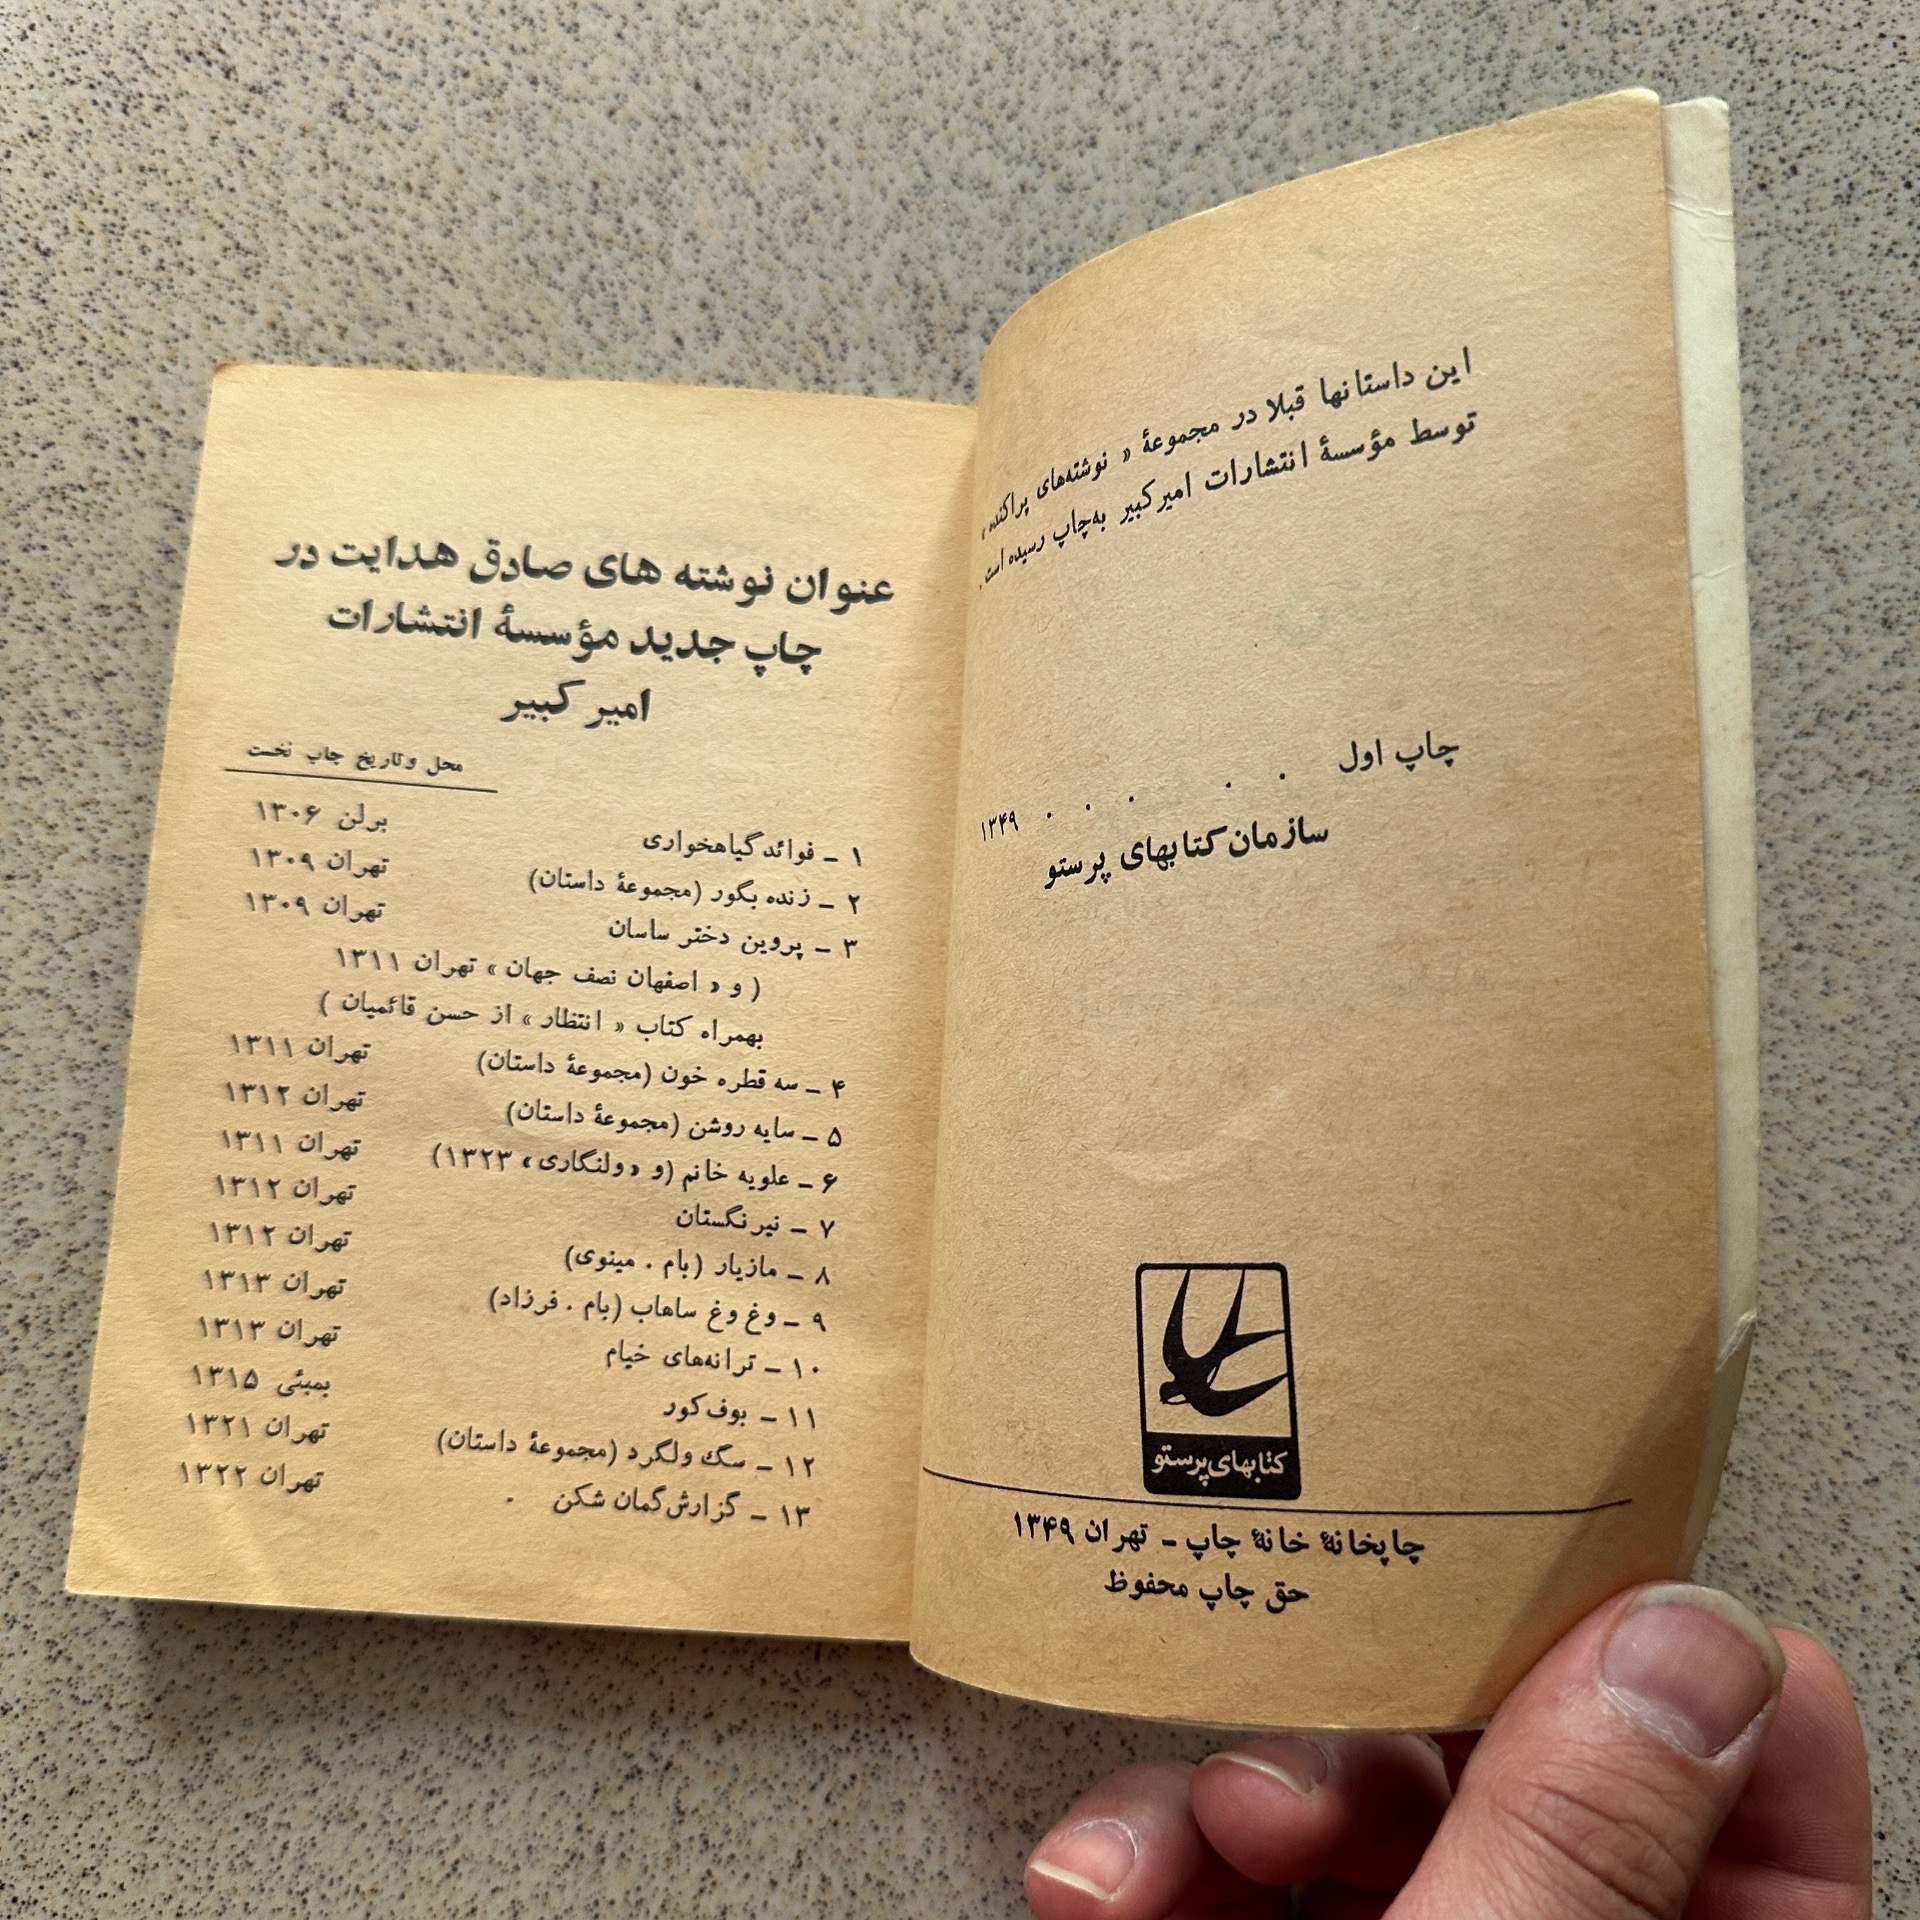 این داستانها قبلا در مجموعهٔ « نوشته‌های پراکنده »
توسط مؤسسهٔ انتشارات امیرکبیر به‌چاپ رسیده است.
چاپ اول . . . . . ۱۳۴۹
سازمان کتابهای پرستو
کتابهای پرستو
چاپخانهٔ خانهٔ چاپ ـ تهران ۱۳۴۹
حق چاپ محفوظ
عنوان نوشته های صادق هدایت در
چاپ جدید مؤسسهٔ انتشارات
امیر کبیر
محل و تاریخ چاپ نخست
۱ ـ فوائد گیاهخواری برلن ۱۳۰۶
۲ ـ زنده بگور (مجموعهٔ داستان) تهران ۱۳۰۹
۳ ـ پروین دختر ساسان تهران ۱۳۰۹
( و « اصفهان نصف جهان » تهران ۱۳۱۱
بهمراه کتاب « انتظار » از حسن قائمیان )
۴ ـ سه قطره خون (مجموعهٔ داستان) تهران ۱۳۱۱
۵ ـ سایه روشن (مجموعهٔ داستان) تهران ۱۳۱۲
۶ ـ علویه خانم (و «ولنگاری» ۱۳۲۳) تهران ۱۳۱۱
۷ ـ نیرنگستان تهران ۱۳۱۲
۸ ـ مازیار (بام . مینوی) تهران ۱۳۱۲
۹ ـ وغ وغ ساهاب (بام . فرزاد) تهران ۱۳۱۳
۱۰ ـ ترانه‌های خیام تهران ۱۳۱۳
۱۱ ـ بوف کور بمبئی ۱۳۱۵
۱۲ ـ سگ ولگرد (مجموعهٔ داستان) تهران ۱۳۲۱
۱۳ ـ گزارش گمان شکن . تهران ۱۳۲۲